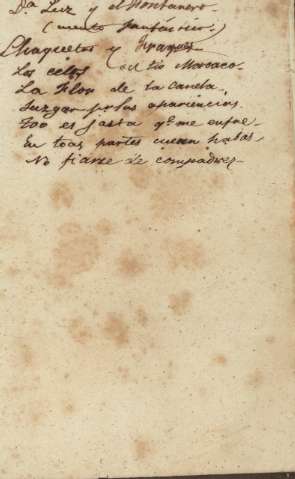 Dª Luz y el Montanero.
(cuento fantástico.)
Chaquetas y Fraques
Los celos del tio Macaco.
La Flor de la Canela.
Juzgar por las apariencias.
Too es jasta qe me enfae.
En toas partes cuecen habas.
No fiarse de compadres